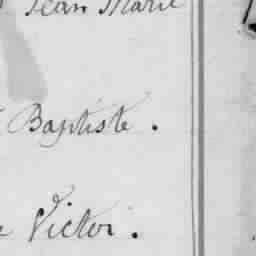 Jean Marie
Baptiste .
Victor .